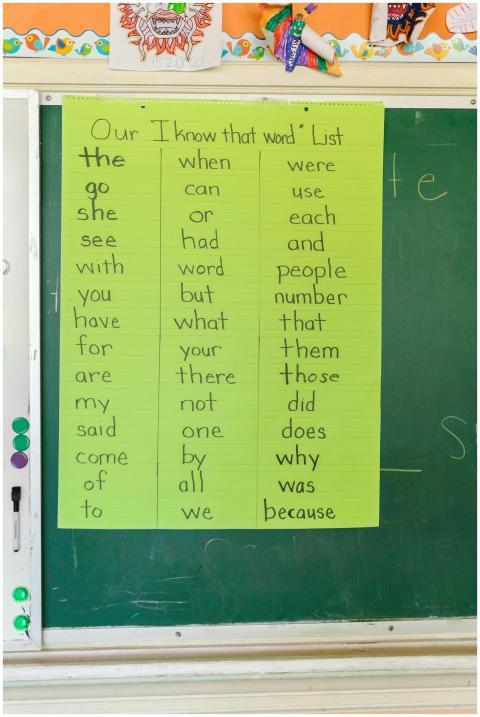 Our "I know that word" List
the when were
go can use
she or each
see had and
with word people
you but number
have what that
for your them
are there those
my not did
said one does
come by why
of all was
to we because